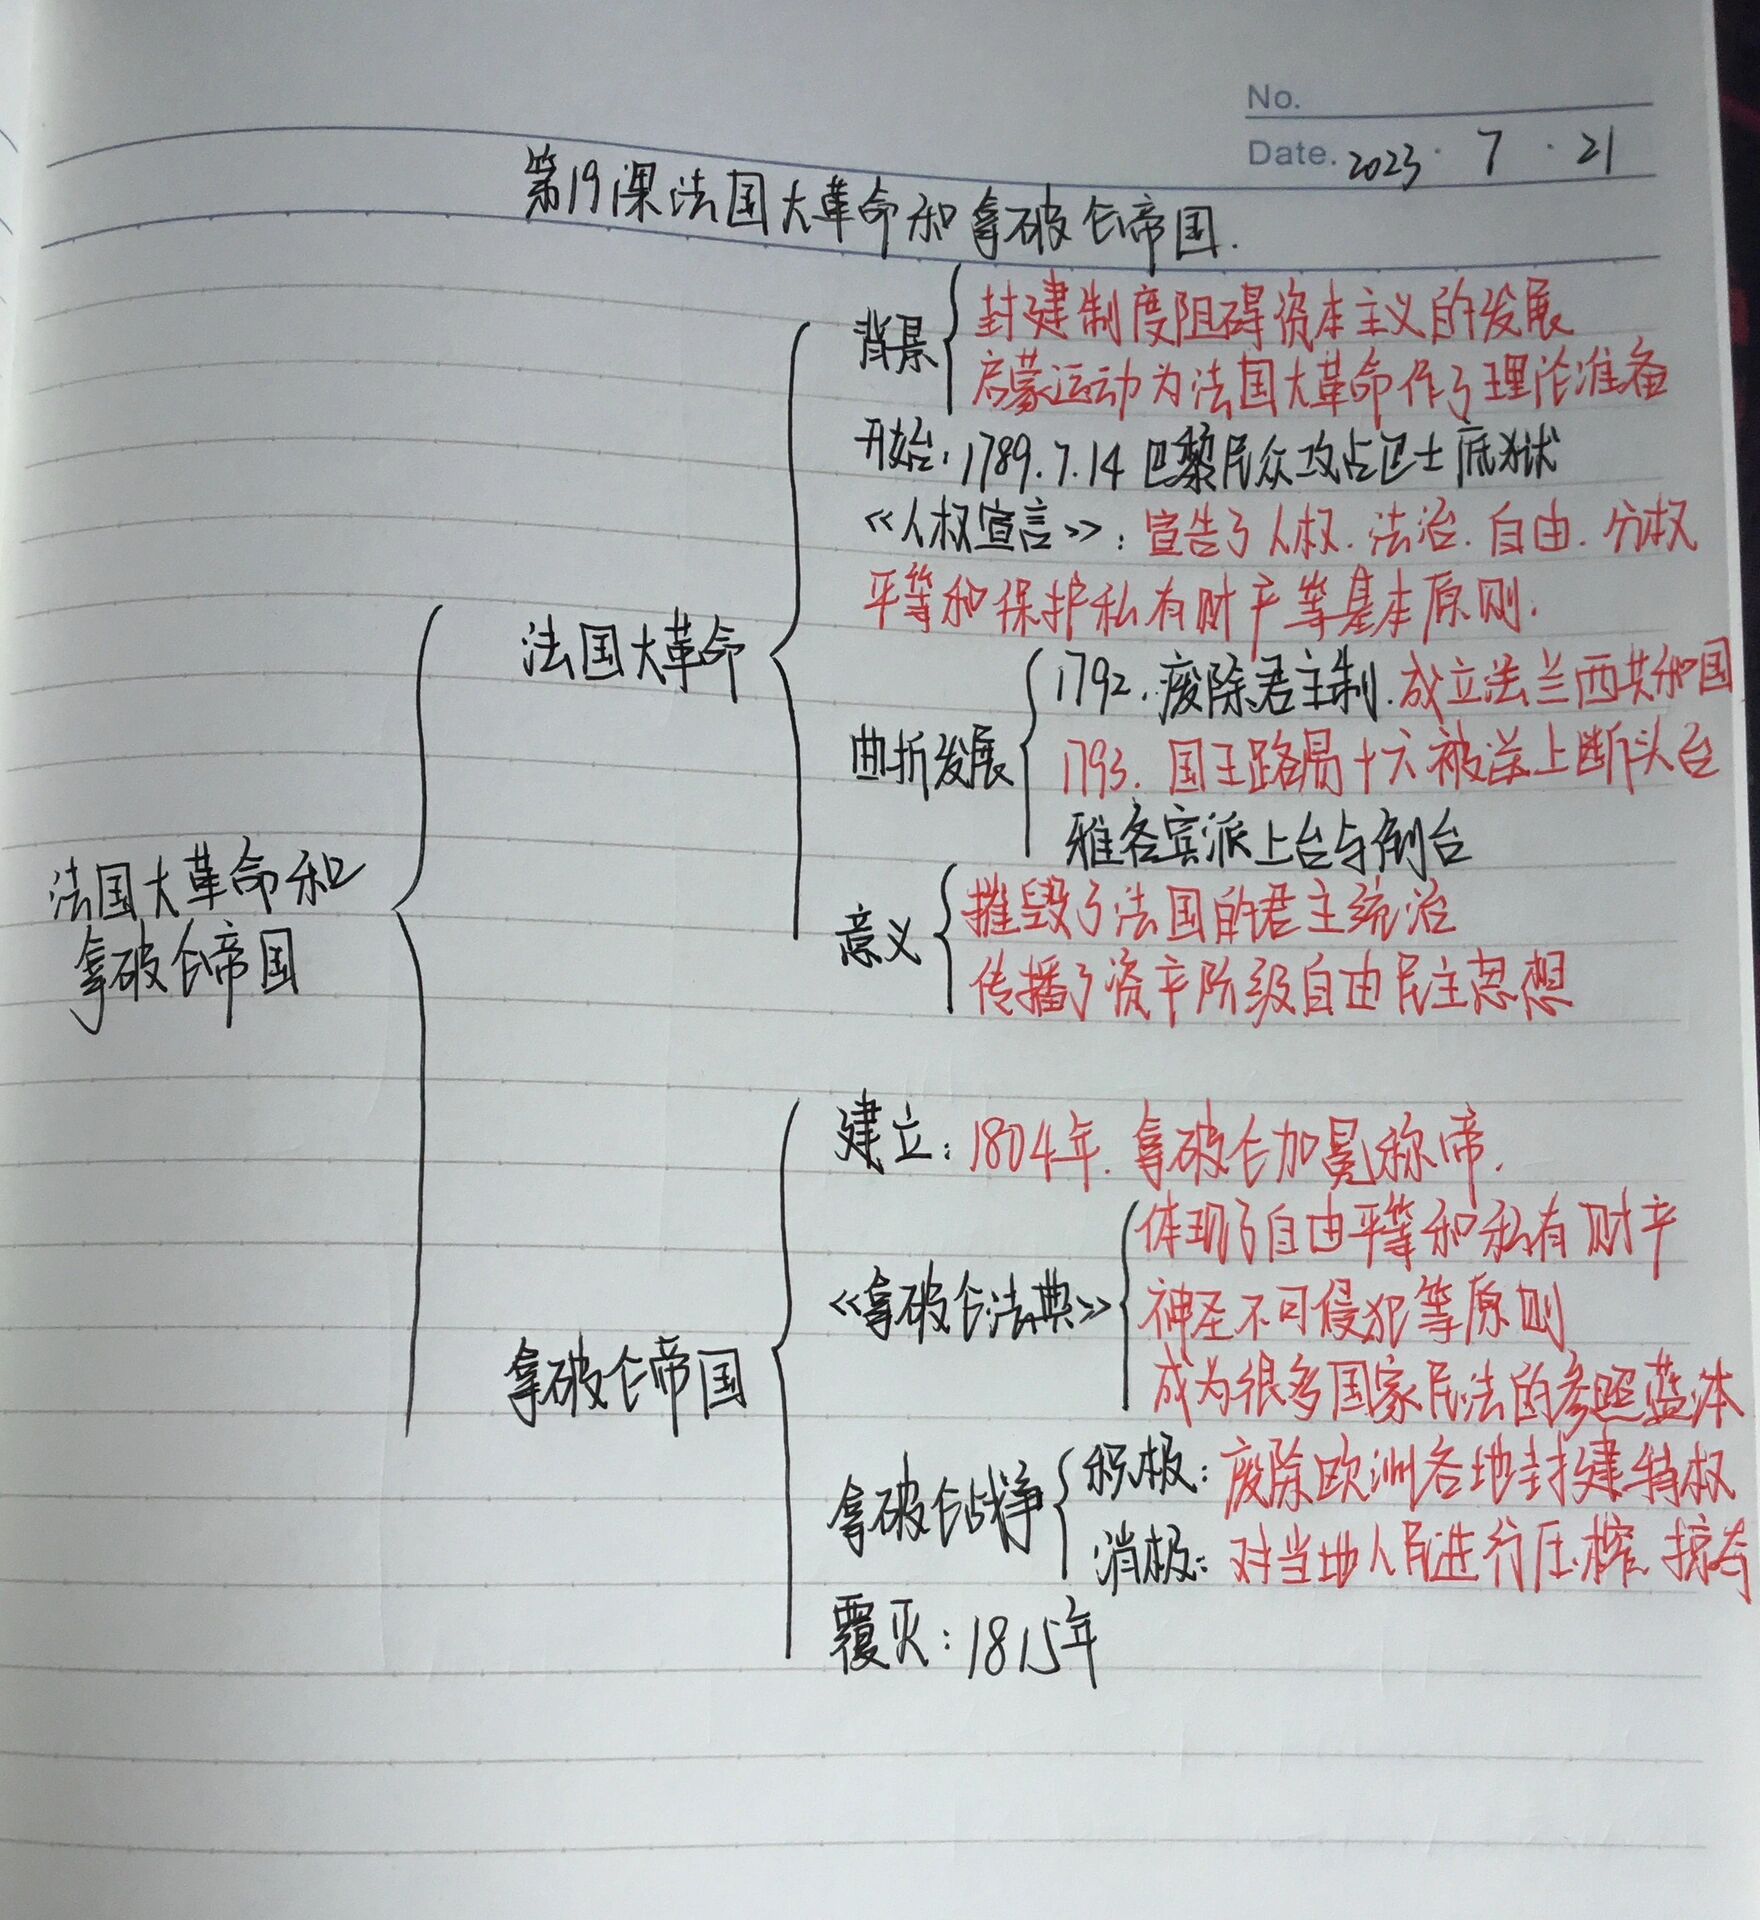 No.
Date. 2023 · 7 · 21
第19课法国大革命和拿破仑帝国.
背景
封建制度阻碍资本主义的发展
启蒙运动为法国大革命作了理论准备
开始:1789.7.14 巴黎民众攻占巴士底狱
《人权宣言》:宣告了人权.法治.自由.分权
平等和保护私有财产等基本原则.
法国大革命
曲折发展
1792.废除君主制.成立法兰西共和国
1793.国王路易十六被送上断头台
雅各宾派上台与倒台
意义
摧毁了法国的君主统治
传播了资产阶级自由民主思想
法国大革命和
拿破仑帝国
建立:1804年.拿破仑加冕称帝.
《拿破仑法典》
体现了自由平等和私有财产
神圣不可侵犯等原则
成为很多国家民法的参照蓝本
拿破仑帝国
拿破仑战争
积极:废除欧洲各地封建特权
消极:对当地人民进行压榨.掠夺
覆灭:1815年